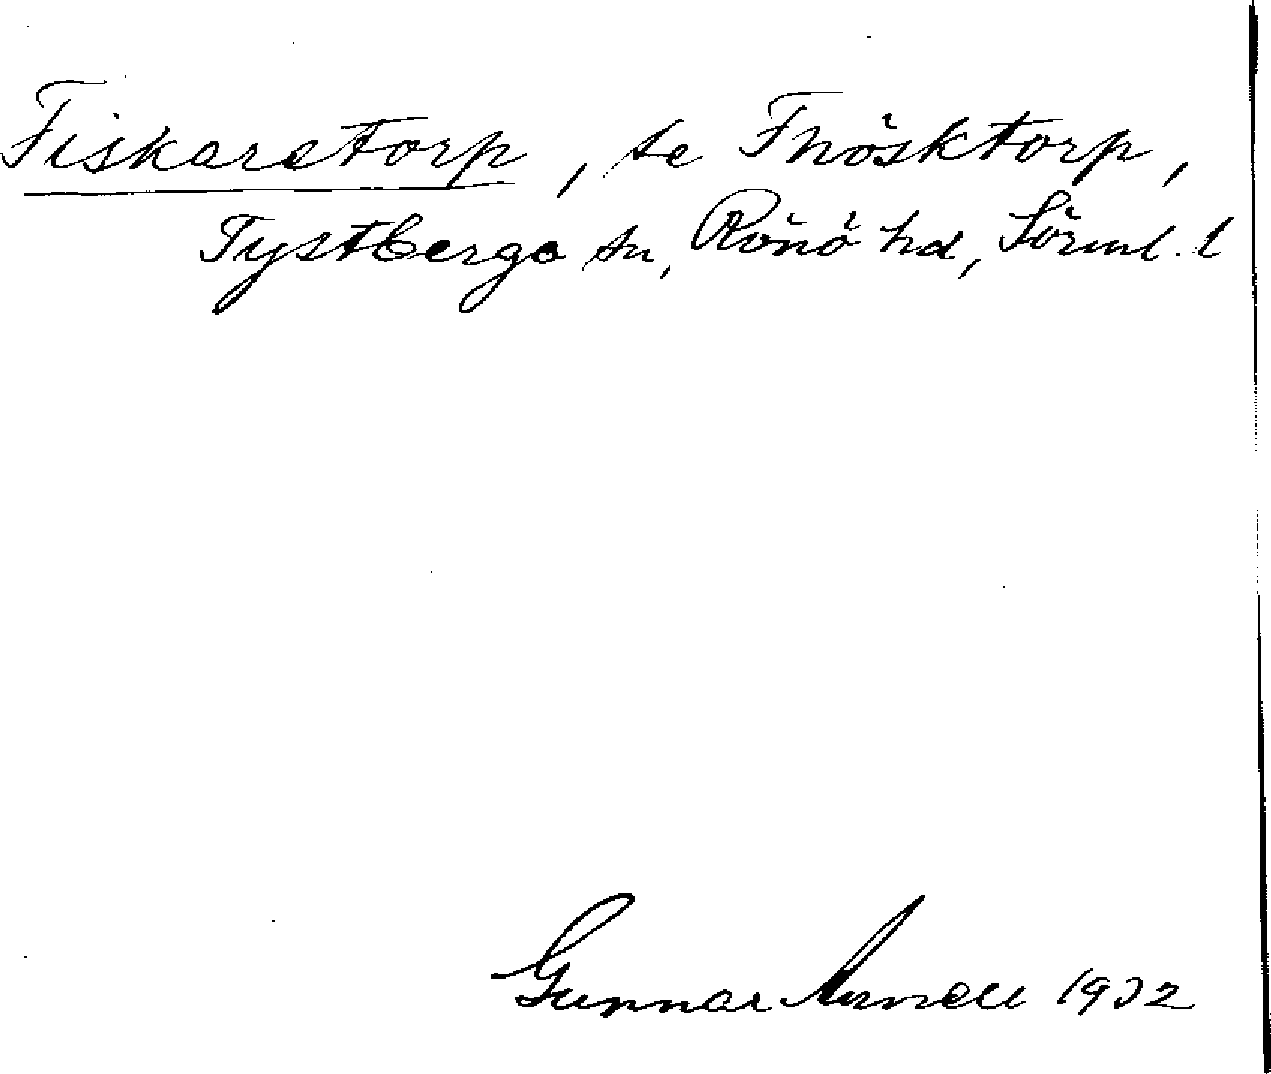 Fiskaretorp, se Fnösktorp,
Tystberga sn, Rönö hd, Sörml. l
Gunnar Arnell 1932